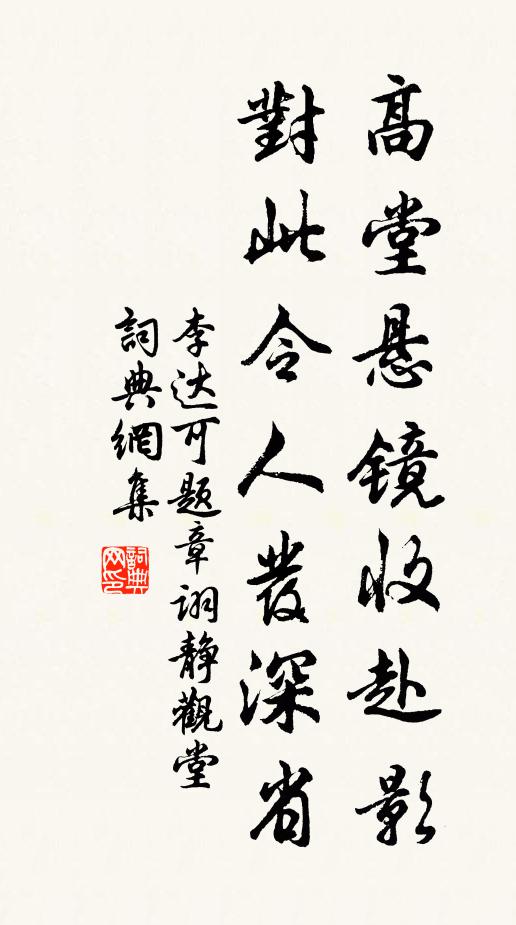 高堂悬镜收赴影
對此令人發深省
李达可题章诩静觀堂
詞典網集
詞典网印